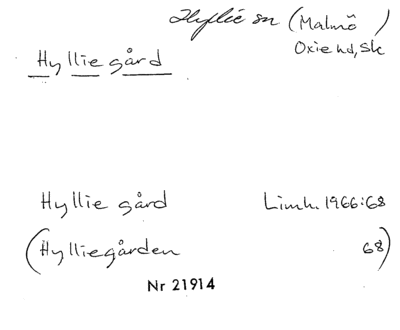 Hyllie sn (Malmö)
Oxie hd, Sk
Hyllie gård
Hyllie gård Limh. 1966:68
(Hylliegården 68)
Nr 21914